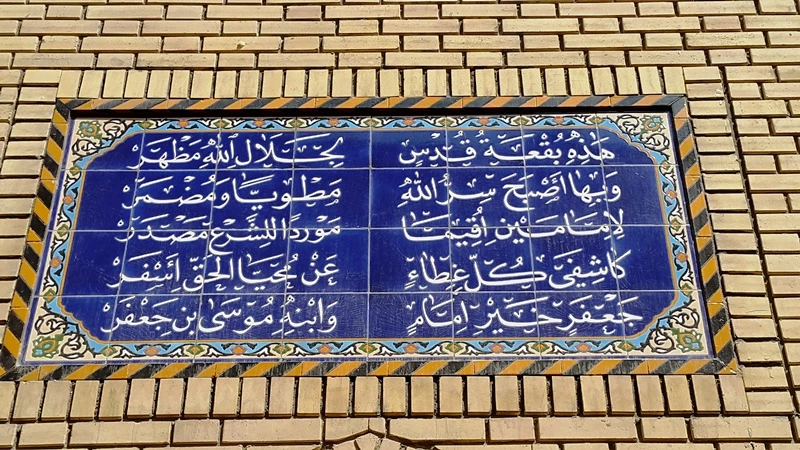 هذه بقعة قدس لجلال الله مظهر
وبها أصبح سر الله مطويا ومضمر
لإمامين أقيما موردا للشرع مصدر
كاشفي كل غطاء عن محيا الحق أسفر
جعفر خير إمام وابنه موسى بن جعفر